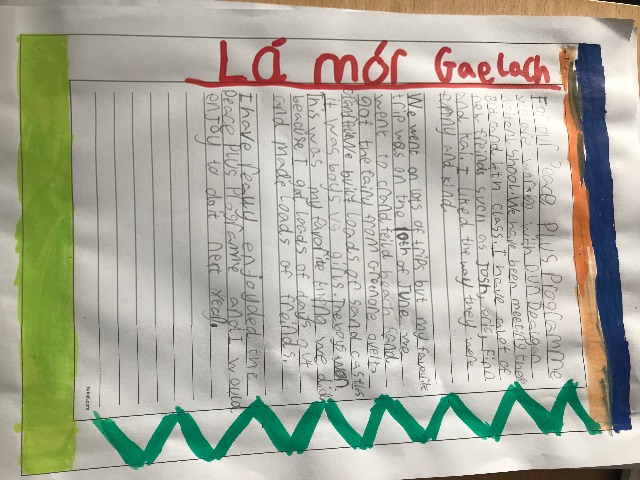 Lá mór Gaelach
For our Peace Plus Programme
we have worked with Dún Dealgan
National School. We have been meeting there
5th and 6th class. I have a lot of
new friends such as Josh, Finn
and Kai. I liked the way they were
funny and kind.
We went on lots of trips but my favourite
trip was on the 10th of June we
went to beach and
got the ferry from over to
We built loads of sand castles
it was boys vs girls. The boys won
This was my favorite thing we did
beacuse I got loads of days out
and made loads of freinds.
I have really enjoyded the
Peace Plus Programme and I would
enjoy to do it next year.